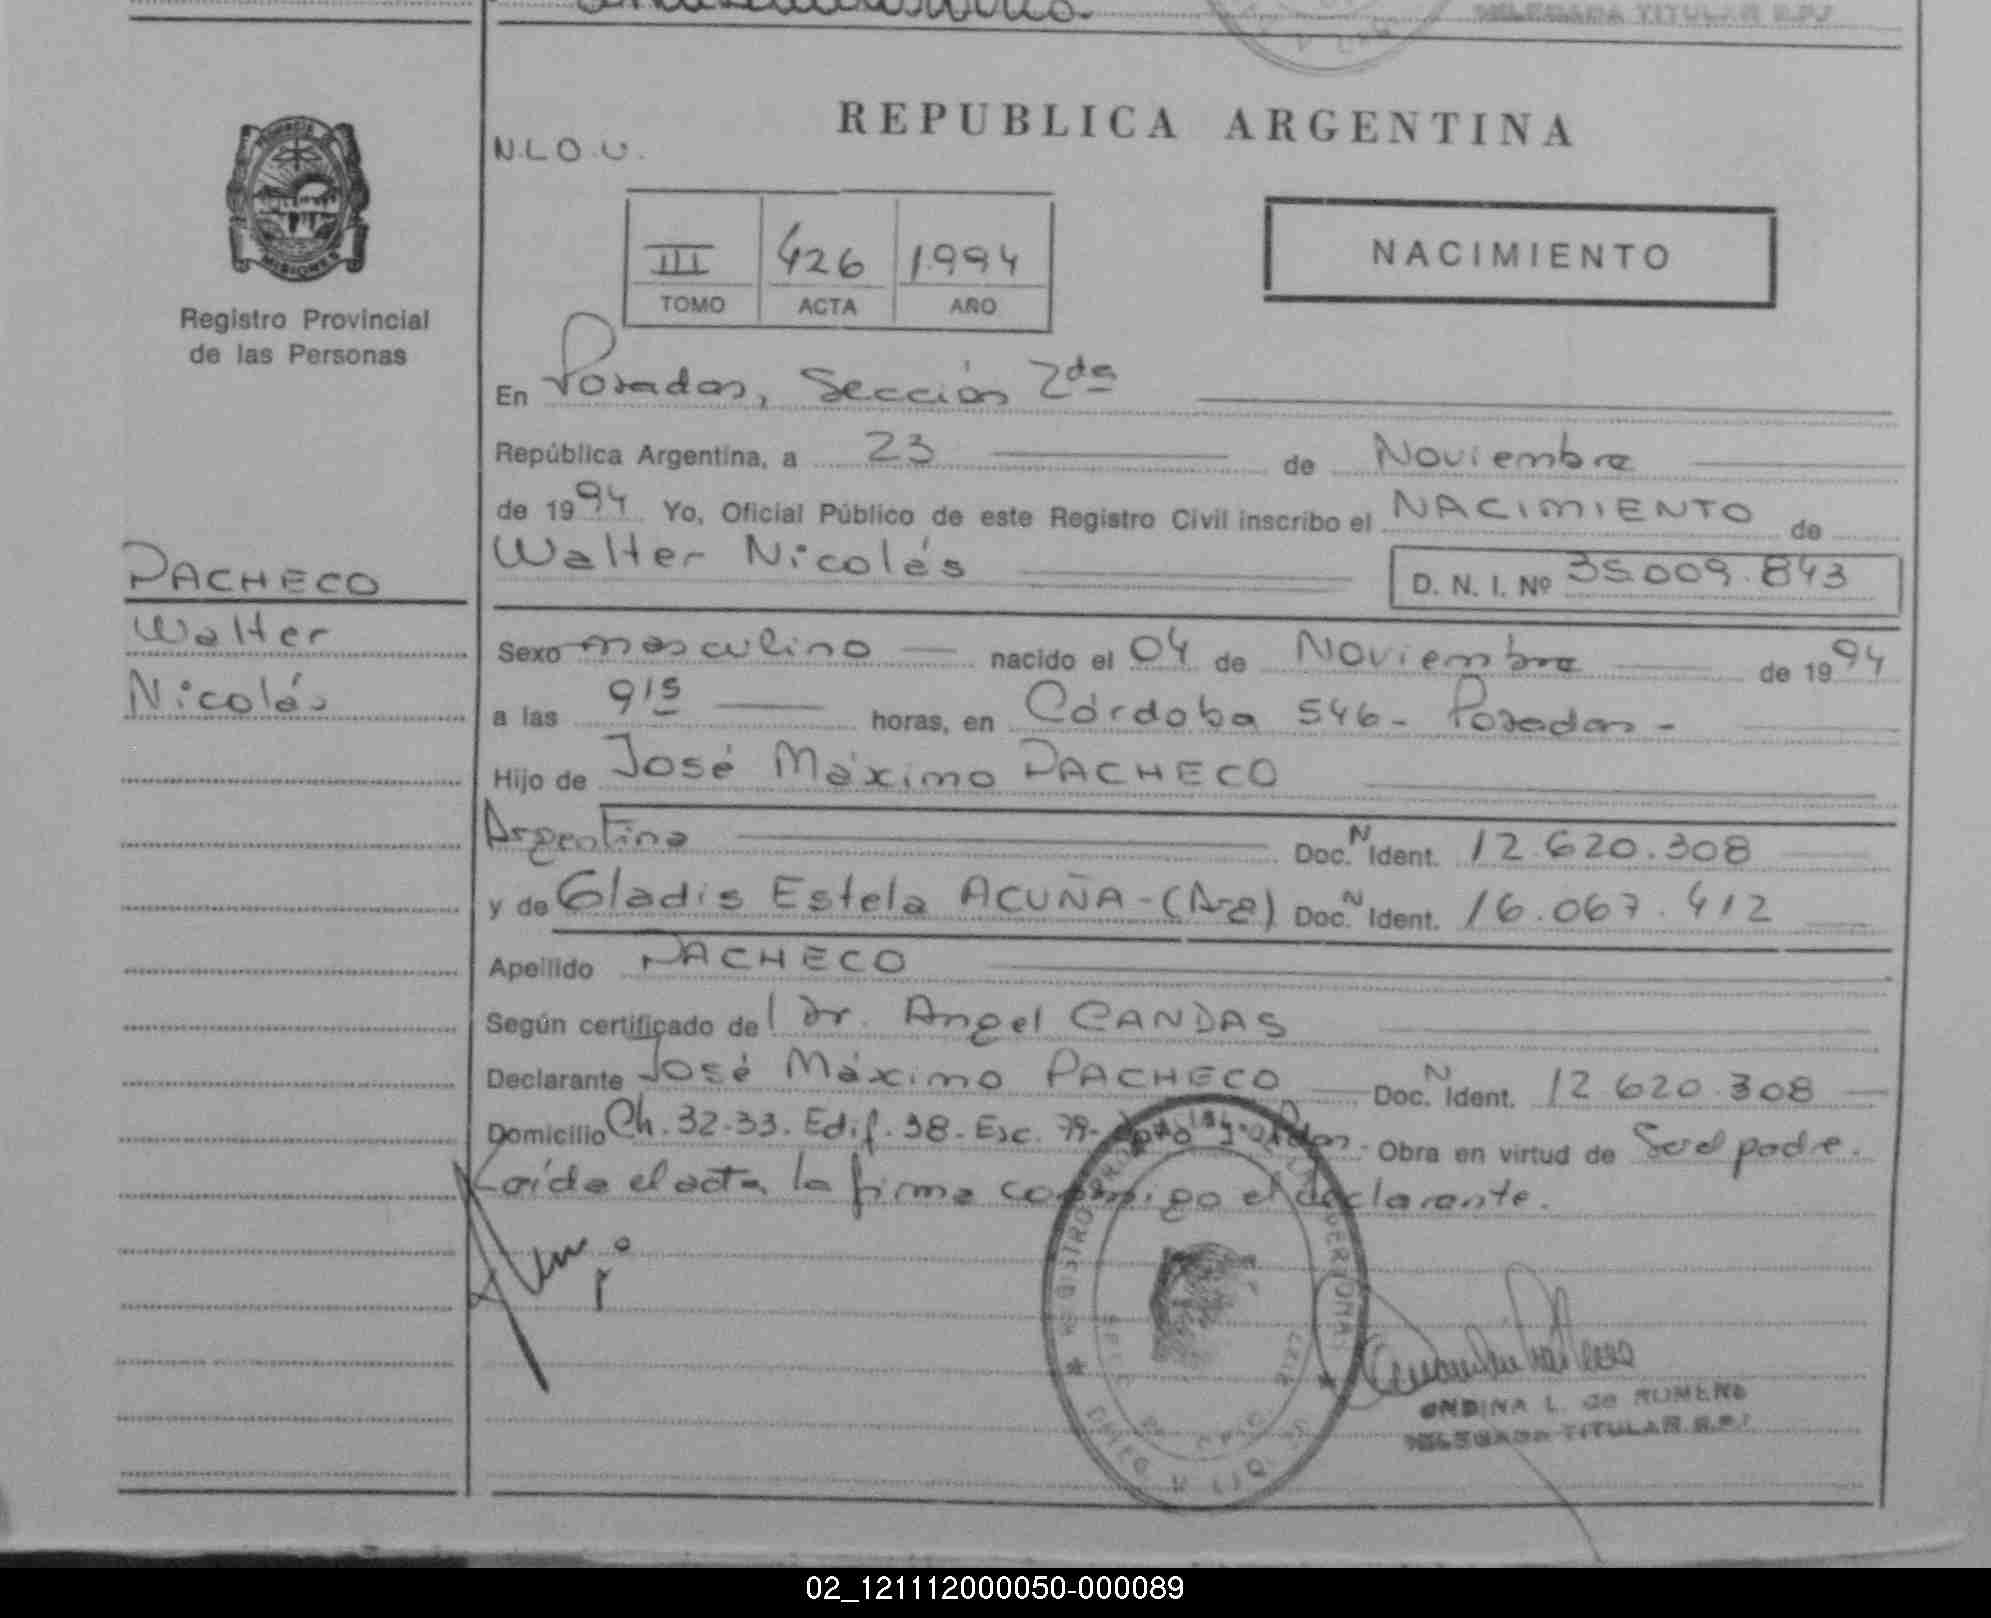 DELEGADA TITULAR R.P.
REPUBLICA ARGENTINA
N.L.O.U.
MISIONES
Registro Provincial
de las Personas
III 426 1994
TOMO ACTA AÑO
NACIMIENTO
En Posadas, Sección 2da
República Argentina, a 23 de Noviembre
de 1994 Yo, Oficial Público de este Registro Civil inscribo el NACIMIENTO de
Walter Nicolás D. N. I. Nº 35.009.843
PACHECO
Walter
Nicolás
Sexo masculino nacido el 04 de Noviembre de 1994
a las 9 15 horas, en Córdoba 546 - Posadas -
Hijo de José Máximo PACHECO
Argentina Doc. N Ident. 12.620.308
y de Gladis Estela ACUÑA - (Arg) Doc. N Ident. 16.067.412
Apellido PACHECO
Según certificado del Dr. Angel CANDAS
Declarante José Máximo PACHECO Doc. N Ident. 12.620.308
Domicilio Ch. 32-33. Edif. 38 - Esc. 79 - Obra en virtud de Ser el padre.
Leída el acta, la firma conmigo el declarante.
REGISTRO DE LAS PERSONAS
ONDINA L. de ROMERO
DELEGADA TITULAR R.P.
02_121112000050-000089